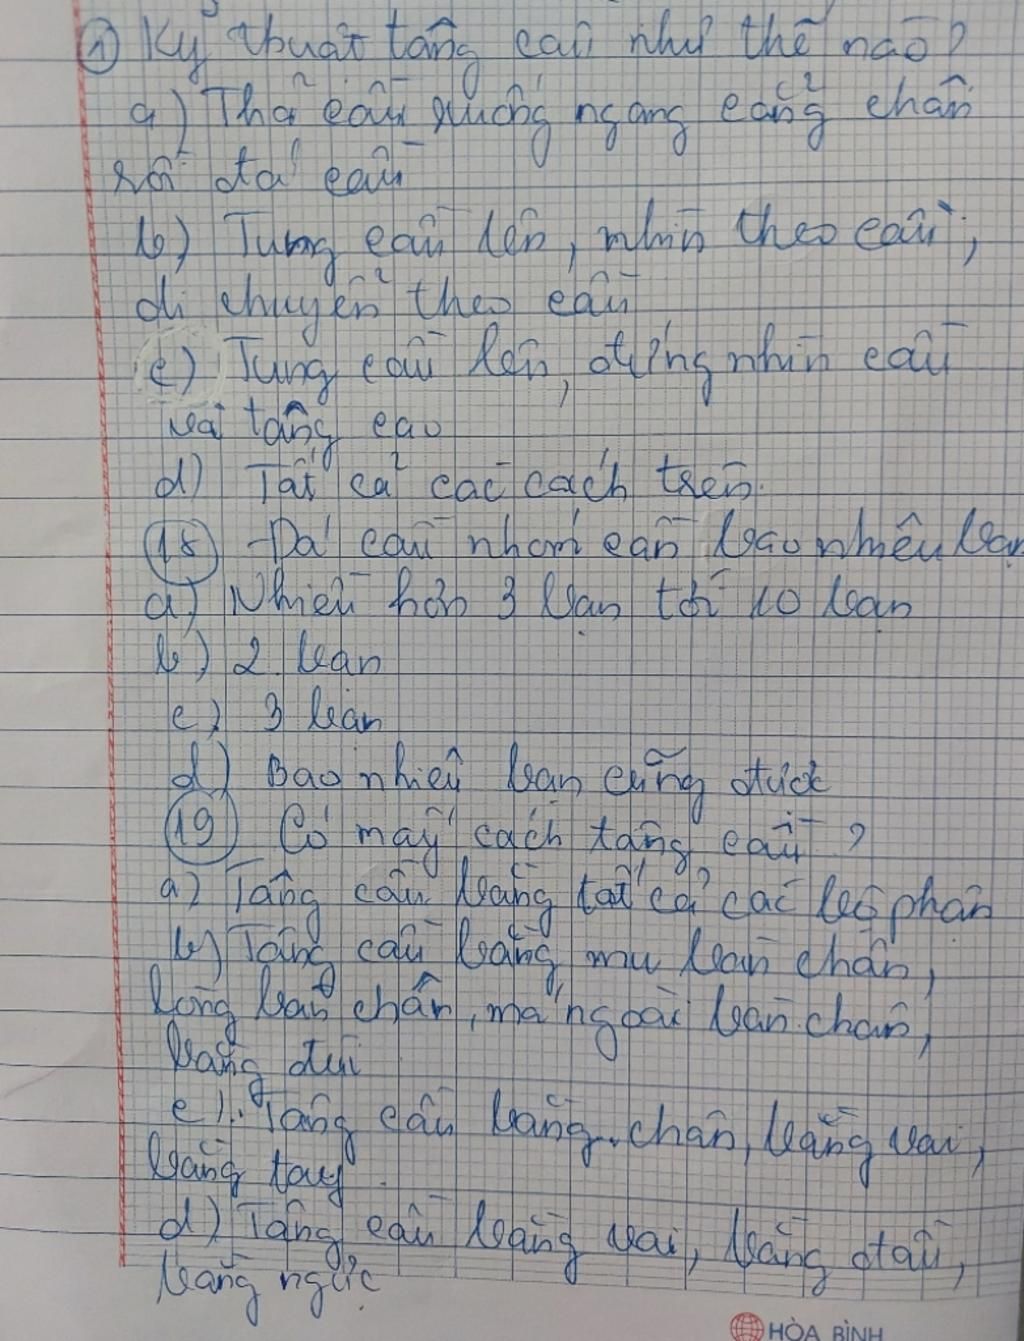 ① Kỹ thuật tâng cầu như thế nào?
a) Thả cầu xuống ngang cẳng chân
rồi đá cầu
b) Tung cầu lên, nhìn theo cầu,
di chuyển theo cầu
c) Tung cầu lên, đứng nhìn cầu
và tâng cao
d) Tất cả các cách trên.
⑱ Đá cầu nhóm cần bao nhiêu bạn
a) Nhiều hơn 3 bạn tới 10 bạn
b) 2 bạn
c) 3 bạn
d) Bao nhiêu bạn cũng được
⑲ Có mấy cách tâng cầu?
a) Tâng cầu bằng tất cả các bộ phận
b) Tâng cầu bằng mu bàn chân,
lòng bàn chân, má ngoài bàn chân,
bằng đùi
c) Tâng cầu bằng chân, bằng vai,
bằng tay
d) Tâng cầu bằng vai, bằng đầu,
bằng ngực
HÒA BÌNH